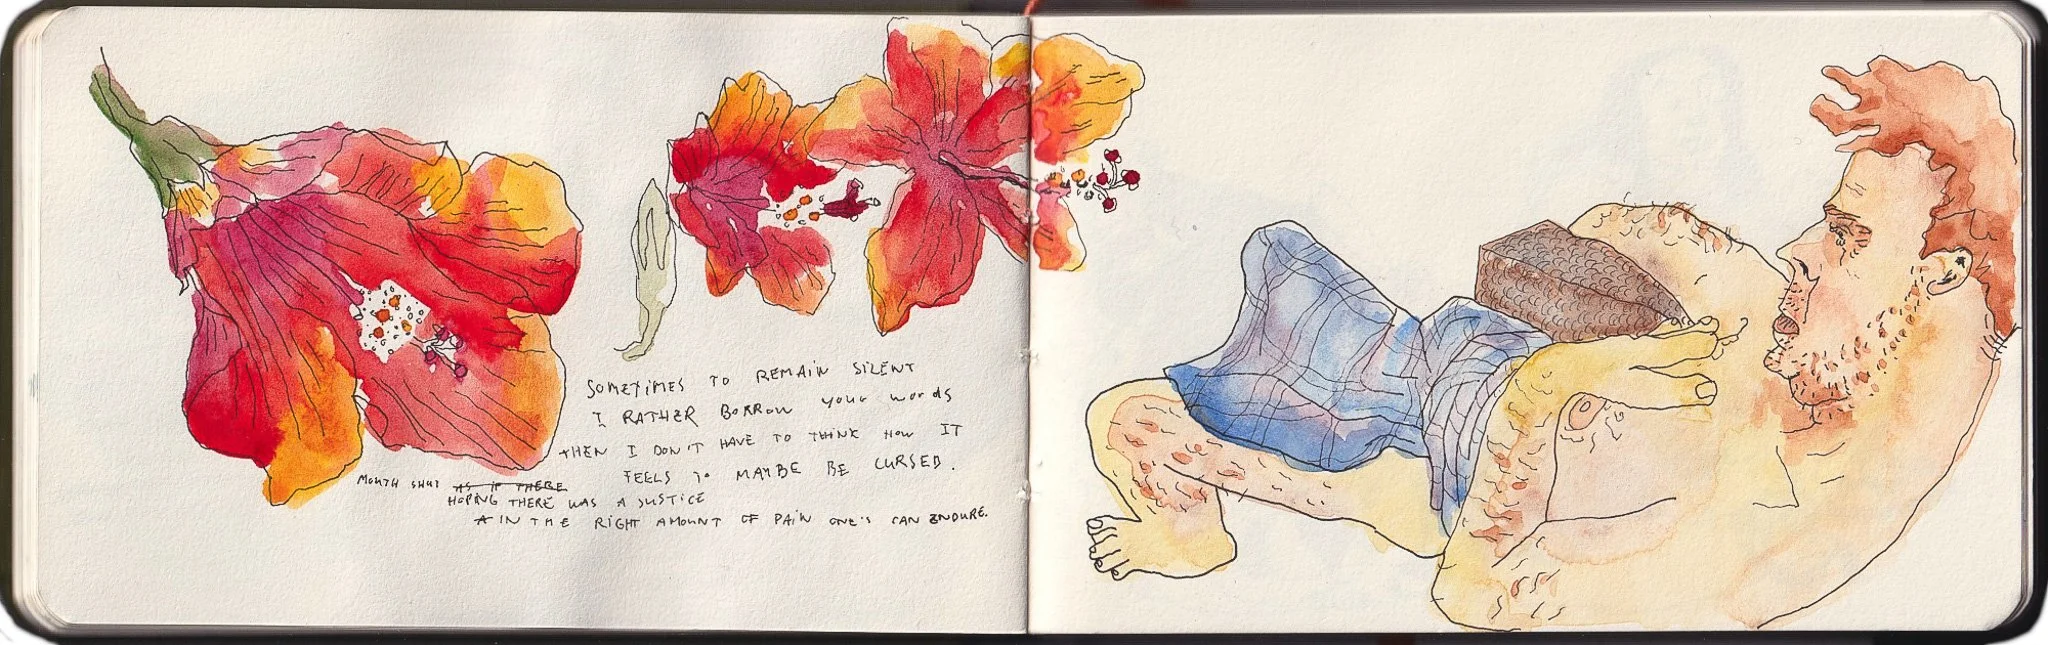 SOMETIMES TO REMAIN SILENT
I RATHER BORROW YOUR WORDS
THEN I DON'T HAVE TO THINK HOW IT
FEELS TO MAYBE BE CURSED.
MOUTH SHUT AS IF THERE
HOPING THERE WAS A JUSTICE
IN THE RIGHT AMOUNT OF PAIN ONE'S CAN ENDURE.